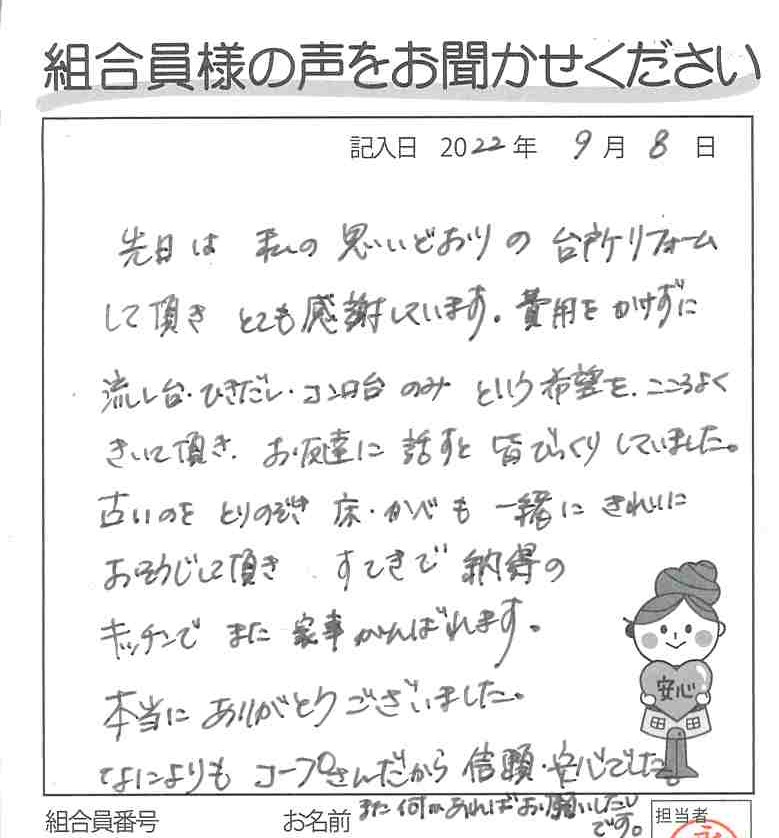 組合員様の声をお聞かせください
記入日 2022年 9月 8日
先日は 私の 思いどおりの 台所リフォーム
して頂き とても感謝しています。費用をかけずに
流し台・ひきだし・コンロ台 のみ という希望を、こころよく
きいて頂き、お友達に 話すと 皆びっくりしていました。
古いのを とりのぞき 床・かべも 一緒に きれいに
おそうじして頂き すてきで 納得の
キッチンで また 家事がんばれます。
本当に ありがとうございました。
なによりも コープさんだから 信頼・安心でした。
また何かあればお願いしたい
です。
安心
組合員番号 お名前 担当者